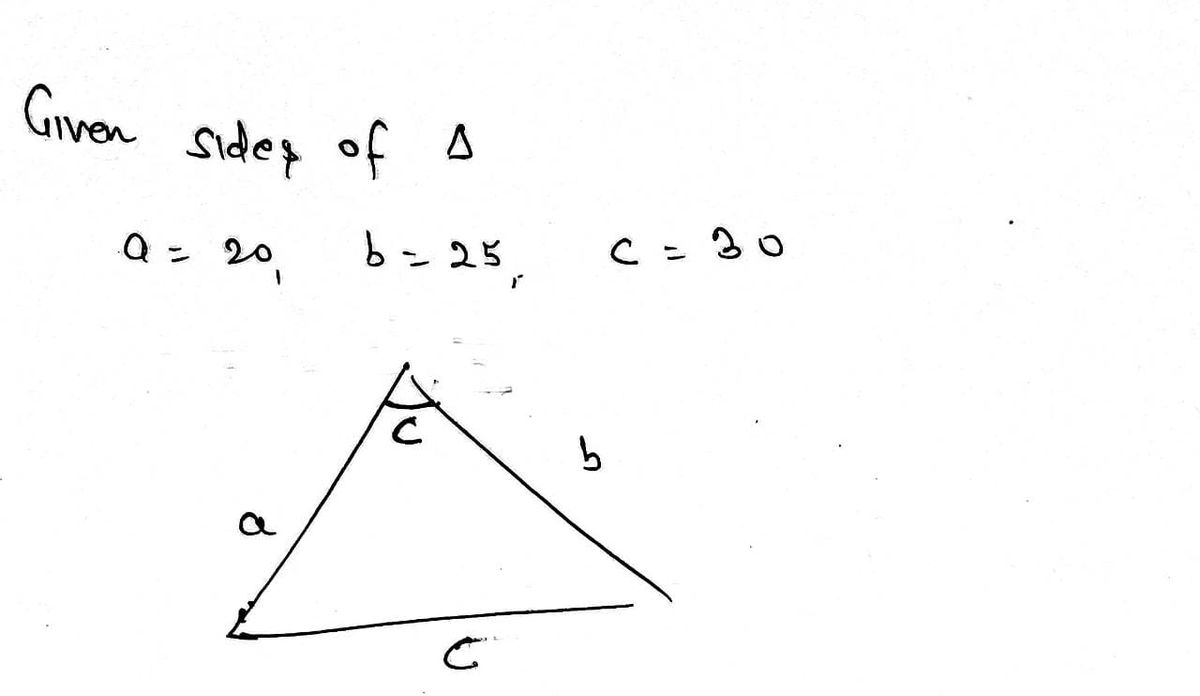 Given sides of Δ
a = 20, b = 25, c = 30
C
b
a
C